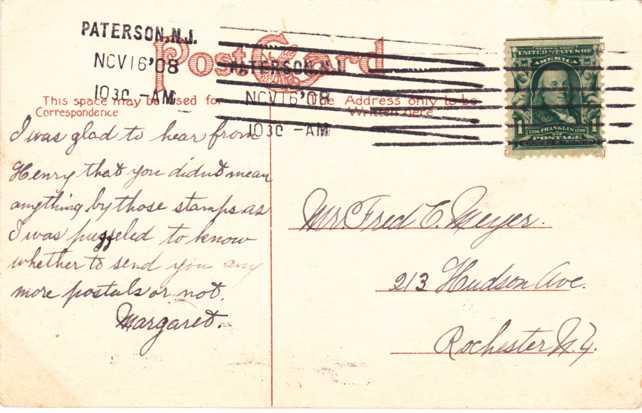 PATERSON, N.J.
NOV 16 '08
1030 - AM
Post Card
PATERSON, N.J.
NOV 16 '08
1030 - AM
This space may be used for
Correspondence
The Address only to be
Written here
UNITED STATES OF
AMERICA
1 FRANKLIN 1
POSTAGE
I was glad to hear from
Henry that you didn't mean
anything by those stamps as
I was puzzeled to know
whether to send you any
more postals or not.
Margaret.
Mr Fred C. Meyer.
213 Hudson Ave.
Rochester N.Y.